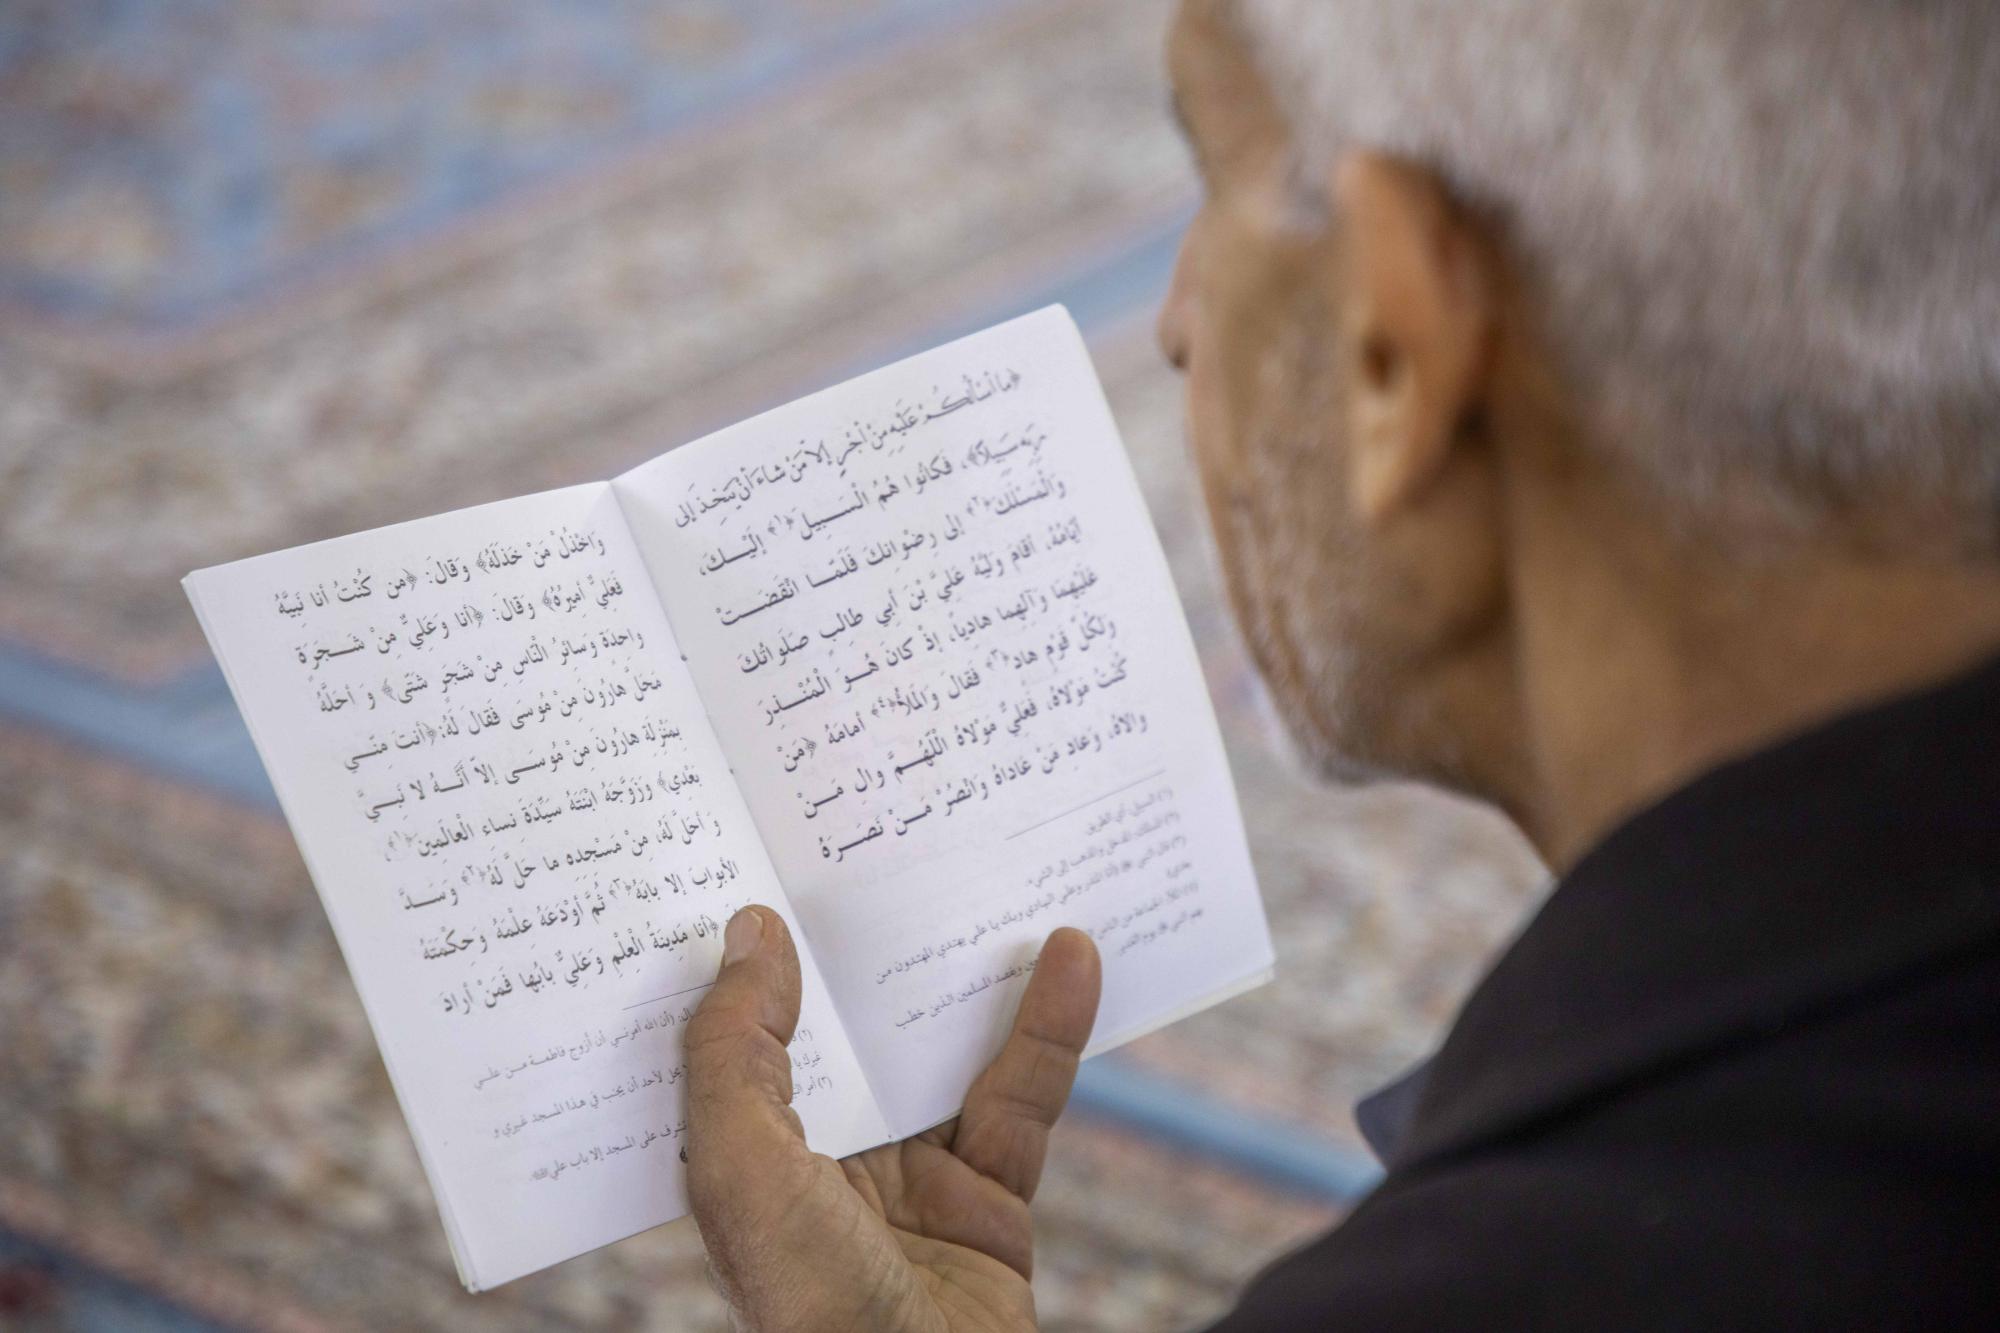 ﴿ما أسْألُكُمْ عَلَيْهِ مِنْ أجْرٍ إلاّ مَنْ شاءَ أنْ يَتّخِذَ إلى
رَبِّهِ سَبيلاً﴾، فَكانُوا هُمُ الْسَبِيلَ﴿١﴾ إلَيْكَ،
وَالْمَسْلَكَ﴿٢﴾ إلى رِضْوانِكَ فَلَمّا انْقَضَتْ
أيّامُهُ، أقامَ وَلِيَّهُ عَلِيَّ بْنَ أبي طالِبٍ صَلَواتُكَ
عَلَيْهِما وَآلِهِما هادِياً، إذْ كانَ هُوَ الْمُنْذِرَ
وَلِكُلِّ قَوْمٍ هاد﴿٣﴾ فَقالَ وَالْمَلأُ﴿٤﴾ أمامَهُ ﴿مَنْ
كُنْتُ مَوْلاهُ، فَعَلِيٌّ مَوْلاهُ اَلْلّهُمَّ والِ مَنْ
والاهُ، وَعادِ مَنْ عاداهُ وَانْصُرْ مَنْ نَصَرَهُ
(١) السبيل: أي الطريق
(٢) المسلك: المدخل والمذهب إلى الشيء.
(٣) قال النبي (أنا المنذر وعلي الهادي وبك يا علي يهتدي المهتدون من
بعدي)
(٤) الملأ: الجماعة من الناس ويقصد المسلمين الذين خطب
بهم النبي يوم الغدير
وَاخْذُلْ مَنْ خَذَلَهُ﴾ وَقالَ: ﴿من كُنْتُ أنا نَبِيَّهُ
فَعَلِيٌّ أميرُهُ﴾ وَقالَ: ﴿أنا وَعَلِيٌّ مِنْ شَجَرَةٍ
واحِدَة وَسائِرُ الْنّاسِ مِنْ شَجَرٍ شَتّى﴾ وَ أحَلَّهُ
مَحَلَّ هارُونَ مِنْ مُوسَى فَقالَ لَهُ:﴿أنتَ مِنّي
بِمَنْزِلَة هارُونَ مِنْ مُوسَى إلاّ أنَّهُ لا نَبِيَّ
بَعْدِي﴾ وَزَوَّجَهُ ابْنَتَهُ سَيِّدَةَ نِساءِ الْعالَمِين﴿١﴾،
وَ أحَلَّ لَهُ، مِنْ مَسْجِدِهِ ما حَلَّ لَهُ﴿٢﴾ وَسَدَّ
الأبوابَ إلا بابَهُ﴿٣﴾ ثُمَّ أوْدَعَهُ عِلْمَهُ وَحِكْمَتَهُ
﴿أنا مَدِينَةُ الْعِلْمِ وَعَلِيٌّ بابُها فَمَنْ أرادَ
(أن الله أمرني أن أزوج فاطمة من علي
(٢) لا يحل لأحد أن يجنب في هذا المسجد غيري و
غيرك يا
(٣) أمر تشرف على المسجد إلا باب علي